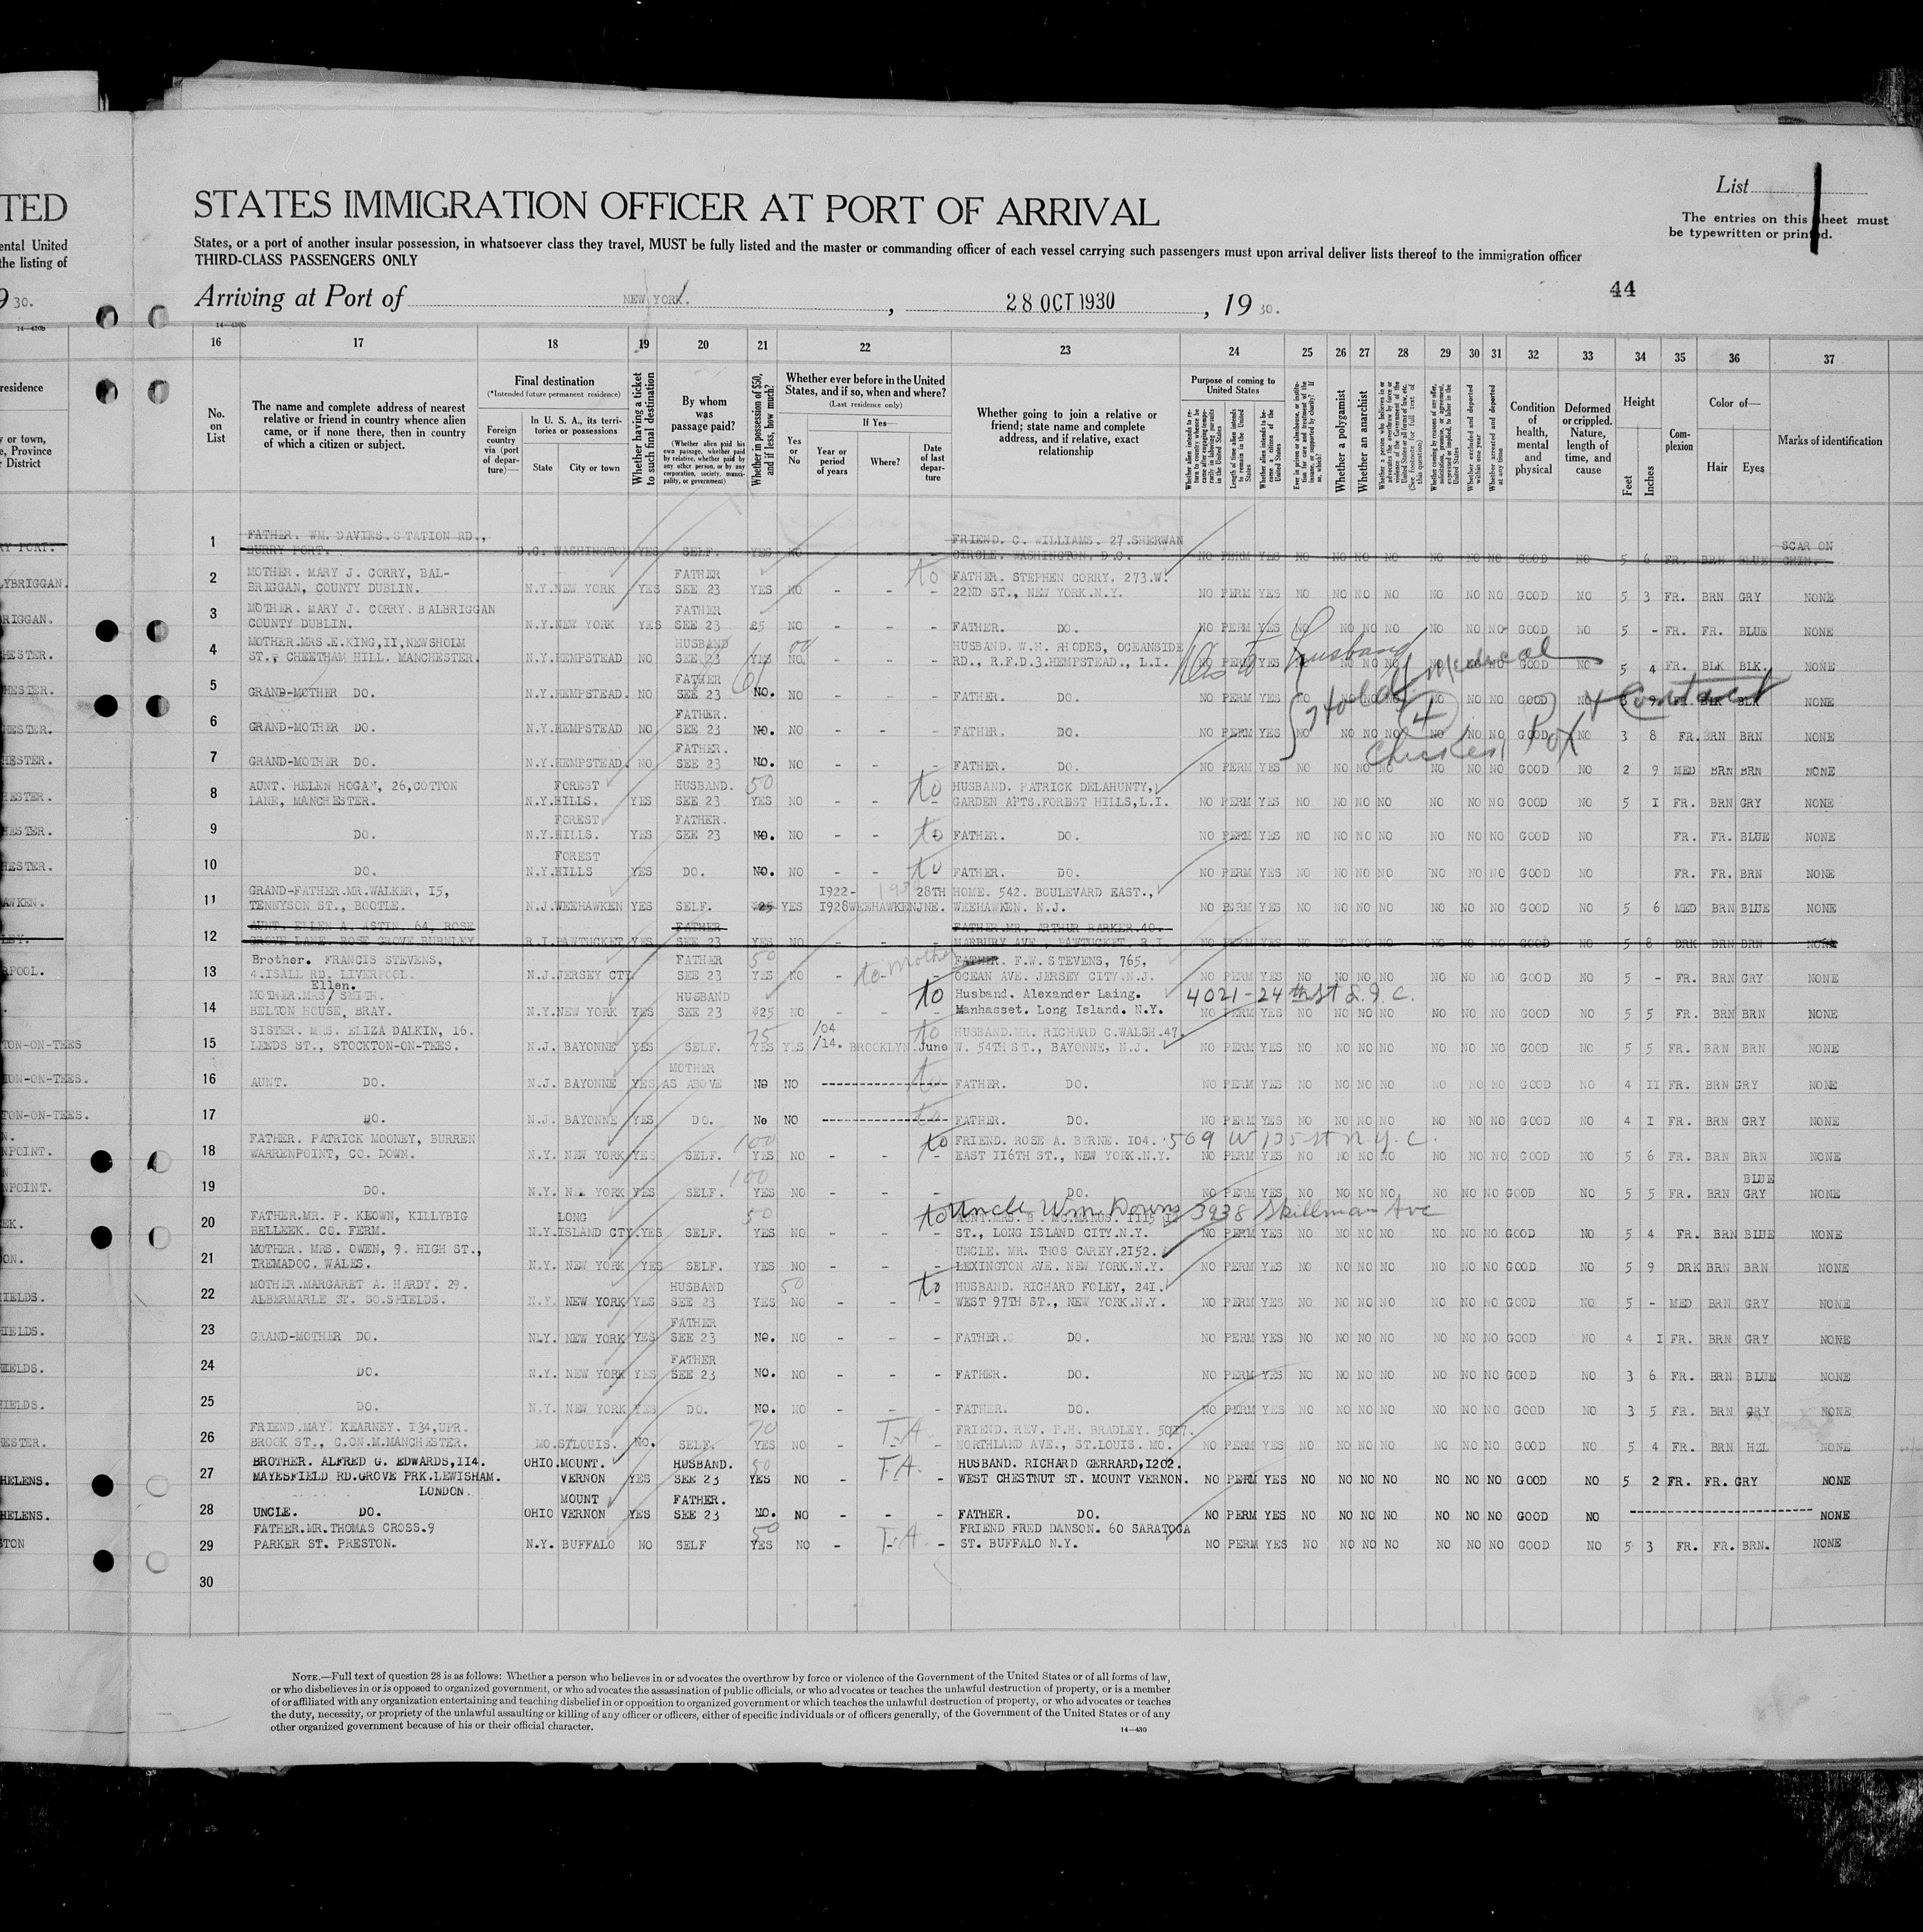 TED
ental United
the listing of
9 30.
14—430b
residence
y or town,
e, Province
r District
RY PORT.
LYBRIGGAN.
RIGGAN.
HESTER.
HESTER.
HESTER.
HESTER.
HESTER.
HESTER.
HESTER.
AWKEN.
LEY.
RPOOL.
TON-ON-TEES
TON-ON-TEES.
TON-ON-TEES.
NPOINT.
NPOINT.
EK.
ON.
HIELDS.
HIELDS.
HIELDS.
HIELDS.
HESTER.
HELENS.
HELENS.
STON
STATES IMMIGRATION OFFICER AT PORT OF ARRIVAL
List
The entries on this sheet must
be typewritten or printed.
States, or a port of another insular possession, in whatsoever class they travel, MUST be fully listed and the master or commanding officer of each vessel carrying such passengers must upon arrival deliver lists thereof to the immigration officer
THIRD-CLASS PASSENGERS ONLY
Arriving at Port of NEW YORK. , 28 OCT 1930 , 19 30.
44
14—430b
16 17 18 19 20 21 22 23 24 25 26 27 28 29 30 31 32 33 34 35 36 37
No. on List
The name and complete address of nearest relative or friend in country whence alien came, or if none there, then in country of which a citizen or subject.
Final destination
(*Intended future permanent residence)
Foreign country via (port of departure)—
In U. S. A., its territories or possessions
State
City or town
Whether having a ticket to such final destination
By whom was passage paid?
(Whether alien paid his own passage, whether paid by relative, whether paid by any other person, or by any corporation, society, municipality, or government)
Whether in possession of $50, and if less, how much?
Whether ever before in the United States, and if so, when and where?
(Last residence only)
Yes or No
If Yes—
Year or period of years
Where?
Date of last departure
Whether going to join a relative or friend; state name and complete address, and if relative, exact relationship
Purpose of coming to United States
Length of time alien intends to remain in the United States
Whether alien intends to become a citizen of the United States
Whether a polygamist
Whether an anarchist
Whether excluded and deported within one year
Whether arrested and deported at any time
Condition of health, mental and physical
Deformed or crippled. Nature, length of time, and cause
Height
Feet
Inches
Complexion
Color of—
Hair
Eyes
Marks of identification
1 FATHER. WM. DAVIES. STATION RD., FRIEND. C. WILLIAMS. 27. SHERWAN SCAR ON
BURRY PORT. D.C. WASHINGTON. YES SELF. YES NO CIRCLE. WASHINGTON. D.C. NO PERM YES NO NO NO NO NO NO NO GOOD NO 5 6 FR. BRN BLUE CHIN.
2 MOTHER. MARY J. CORRY, BAL- FATHER to FATHER. STEPHEN CORRY. 273.W.
BRIGGAN, COUNTY DUBLIN. N.Y. NEW YORK YES SEE 23 YES NO - - - 22ND ST., NEW YORK.N.Y. NO PERM YES NO NO NO NO NO NO NO GOOD NO 5 3 FR. BRN GRY NONE
3 MOTHER. MARY J. CORRY. BALBRIGGAN FATHER
COUNTY DUBLIN. N.Y. NEW YORK YES SEE 23 £5 NO - - - FATHER. DO. NO PERM YES NO NO NO NO NO NO NO GOOD NO 5 - FR. FR. BLUE NONE
4 MOTHER.MRS.E.KING,II,NEWSHOLM HUSBAND HUSBAND. W.H. RHODES, OCEANSIDE Husband
ST., CHEETHAM HILL. MANCHESTER. N.Y. HEMPSTEAD NO SEE 23 YES NO. - - - RD., R.F.D.3.HEMPSTEAD., L.I. NO PERM YES NO NO NO NO NO NO NO GOOD NO 5 4 FR. BLK BLK. NONE
5 FATHER Hold medical
GRAND-MOTHER DO. N.Y. HEMPSTEAD. NO SEE 23 NO. NO - - - FATHER. DO. NO PERM YES NO NO NO NO NO NO NO GOOD NO 3 9 FR. BLK BLK NONE
6 FATHER. 4 + Contact
GRAND-MOTHER DO. N.Y. HEMPSTEAD NO SEE 23 NO. NO - - - FATHER. DO. NO PERM YES NO NO NO NO NO NO NO GOOD NO 3 8 FR. BRN BRN NONE
7 FATHER. Chicken Pox
GRAND-MOTHER DO. N.Y. HEMPSTEAD. NO SEE 23 NO. NO - - - FATHER. DO. NO PERM YES NO NO NO NO NO NO NO GOOD NO 2 9 MED BRN BRN NONE
8 AUNT. HELEN HOGAN, 26,COTTON FOREST HUSBAND. 50 to HUSBAND. PATRICK DELAHUNTY,
LANE, MANCHESTER. N.Y. HILLS. YES SEE 23 YES NO - - - GARDEN APTS.FOREST HILLS,L.I. NO PERM YES NO NO NO NO NO NO NO GOOD NO 5 I FR. BRN GRY NONE
9 FOREST FATHER.
DO. N.Y. HILLS. YES SEE 23 NO. NO - - to FATHER. DO. NO PERM YES NO NO NO NO NO NO NO GOOD NO FR. FR. BLUE NONE
10 FOREST
DO. N.Y. HILLS YES DO. NO. NO - - to FATHER. DO. NO PERM YES NO NO NO NO NO NO NO GOOD NO FR. FR. BRN NONE
11 GRAND-FATHER.MR.WALKER, I5, I922- 28TH HOME. 542. BOULEVARD EAST.,
TENNYSON ST., BOOTLE. N.J. WEEHAWKEN YES SELF. $25 YES I928 WEEHAWKEN JNE. WEEHAWKEN. N.J. NO PERM YES NO NO NO NO NO NO NO GOOD NO 5 6 MED BRN BLUE NONE
12 AUNT. ELLEN A. ASTIN. 64, ROSE FATHER FATHER.MR. ARTHUR BARKER.40.
GROVE LANE. ROSE GROVE BURNLEY R.I. PAWTUCKET YES SEE 23 YES NO - - - MARBURY AVE., PAWTUCKET. R.I. NO PERM YES NO NO NO NO NO NO NO GOOD NO 5 8 DRK BRN BRN NONE
13 Brother. FRANCIS STEVENS, FATHER 50 to Mother FATHER. F.W. STEVENS, 765,
4.ISALL RD. LIVERPOOL. N.J. JERSEY CTY. SEE 23 YES NO - - - OCEAN AVE. JERSEY CITY.N.J. NO PERM YES NO NO NO NO NO NO NO GOOD NO 5 - FR. BRN GRY NONE
Ellen.
14 MOTHER.MRS/ SMITH. HUSBAND to Husband. Alexander Laing. 4021-24th St L.I.C.
BELTON HOUSE, BRAY. N.Y. NEW YORK YES SEE 23 $25 NO - - - Manhasset. Long Island. N.Y. NO PERM YES NO NO NO NO NO NO NO GOOD NO 5 5 FR. BRN BRN NONE
15 SISTER. MRS. ELIZA DALKIN, 16. 75 /04 to HUSBAND.MR. RICHARD C.WALSH.47.
LEEDS ST., STOCKTON-ON-TEES. N.J. BAYONNE YES SELF. YES YES /14. BROOKLYN. June W. 54TH ST., BAYONNE, N.J. NO PERM YES NO NO NO NO NO NO NO GOOD NO 5 5 FR. BRN BRN NONE
16 MOTHER
AUNT. DO. N.J. BAYONNE YES AS ABOVE No NO ------------------ to FATHER. DO. NO PERM YES NO NO NO NO NO NO NO GOOD NO 4 II FR. BRN GRY NONE
17 DO. N.J. BAYONNE YES DO. No NO ------------------ to FATHER. DO. NO PERM YES NO NO NO NO NO NO NO GOOD NO 4 I FR. BRN GRY NONE
18 FATHER. PATRICK MOONEY, BURREN 100 to FRIEND. ROSE A. BYRNE. I04. 509 W 135 St N.Y.C.
WARRENPOINT, CO. DOWN. N.Y. NEW YORK YES SELF. YES NO - - - EAST II6TH ST., NEW YORK.N.Y. NO PERM YES NO NO NO NO NO NO NO GOOD NO 5 6 FR. BRN BRN NONE
19 100 BLUE
DO. N.Y. NEW YORK YES SELF. YES NO - - - DO. NO PERM YES NO NO NO NO NO NO NO GOOD NO 5 5 FR. BRN GRY NONE
to Uncle Wm. Downs 3938 Skillman Ave
20 FATHER.MR. P. KEOWN, KILLYBIG LONG 50 AUNT.MRS. B.
BELLEEK. CO. FERM. N.Y. ISLAND CTY. YES SELF. YES NO - - - ST., LONG ISLAND CITY.N.Y. NO PERM YES NO NO NO NO NO NO NO GOOD NO 5 4 FR. BRN BLUE NONE
21 MOTHER. MRS. OWEN, 9. HIGH ST., UNCLE. MR. THOS CAREY.2I52.
TREMADOC. WALES. N.Y. NEW YORK YES SELF. YES NO LEXINGTON AVE. NEW YORK.N.Y. NO PERM YES NO NO NO NO NO NO NO GOOD NO 5 9 DRK BRN BRN NONE
22 MOTHER.MARGARET A. HARDY. 29. HUSBAND 50 to HUSBAND. RICHARD FOLEY, 24I.
ALBERMARLE ST. SO.SHIELDS. N.Y. NEW YORK YES SEE 23 YES NO - - - WEST 97TH ST., NEW YORK.N.Y. NO PERM YES NO NO NO NO NO NO NO GOOD NO 5 - MED BRN GRY NONE
23 FATHER
GRAND-MOTHER DO. N.Y. NEW YORK YES SEE 23 NO. NO - - - FATHER. DO. NO PERM YES NO NO NO NO NO NO NO GOOD NO 4 I FR. BRN GRY NONE
24 FATHER
DO. N.Y. NEW YORK YES SEE 23 NO. NO - - - FATHER. DO. NO PERM YES NO NO NO NO NO NO NO GOOD NO 3 6 FR. BRN BLUE NONE
25 DO. N.Y. NEW YORK YES DO. NO. NO - - - FATHER. DO. NO PERM YES NO NO NO NO NO NO NO GOOD NO 3 5 FR. BRN GRY NONE
26 FRIEND.MAY. KEARNEY. I34,UPR. 70 T.A. FRIEND. REV. P.H. BRADLEY. 50I7.
BROOK ST., C.ON.M.MANCHESTER. MO. ST.LOUIS. NO. SELF. YES NO - - - NORTHLAND AVE., ST.LOUIS. MO. NO PERM YES NO NO NO NO NO NO NO GOOD NO 5 4 FR. BRN HZL NONE
27 BROTHER. ALFRED G. EDWARDS,II4. OHIO. MOUNT. HUSBAND. 50 T.A. HUSBAND. RICHARD GERRARD,I202.
MAYESFIELD RD.GROVE PRK.LEWISHAM. VERNON YES SEE 23 YES NO - - WEST CHESTNUT ST. MOUNT VERNON. NO PERM YES NO NO NO NO NO NO NO GOOD NO 5 2 FR. FR. GRY NONE
LONDON.
28 MOUNT FATHER.
UNCLE. DO. OHIO VERNON YES SEE 23 NO. NO - - - FATHER. DO. NO PERM YES NO NO NO NO NO NO NO GOOD NO ------------------ NONE
29 FATHER.MR.THOMAS CROSS.9 50 T.A. FRIEND FRED DANSON. 60 SARATOGA
PARKER ST. PRESTON. N.Y. BUFFALO NO SELF YES NO - - - ST. BUFFALO N.Y. NO PERM YES NO NO NO NO NO NO NO GOOD NO 5 3 FR. FR. BRN. NONE
30
NOTE.—Full text of question 28 is as follows: Whether a person who believes in or advocates the overthrow by force or violence of the Government of the United States or of all forms of law,
or who disbelieves in or is opposed to organized government, or who advocates the assassination of public officials, or who advocates or teaches the unlawful destruction of property, or is a member
of or affiliated with any organization entertaining and teaching disbelief in or opposition to organized government or which teaches the unlawful destruction of property, or who advocates or teaches
the duty, necessity, or propriety of the unlawful assaulting or killing of any officer or officers, either of specific individuals or of officers generally, of the Government of the United States or of any
other organized government because of his or their official character.
14—430